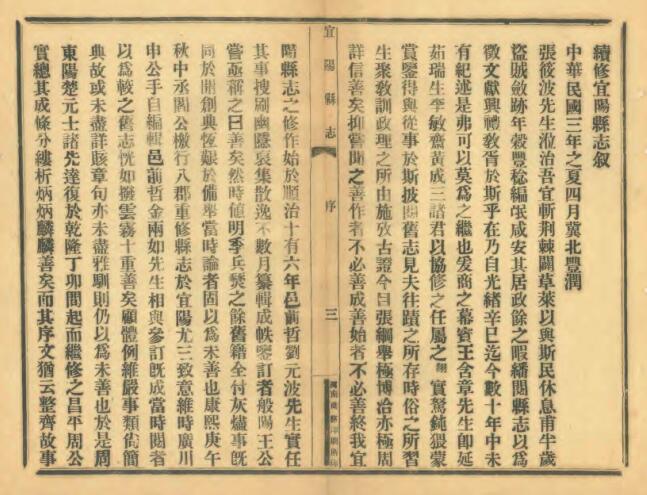 續修宜陽縣志叙
中華民國三年之夏四月冀北豐潤
張筱波先生涖治吾宜斬荆棘闢草萊以與斯民休息甫半歲
盜賊斂跡年穀豐稔編氓咸安其居政餘之暇繙閱縣志以爲
徵文獻興禮教胥於斯乎在乃自光緒辛巳迄今數十年中未
有紀述是弗可以莫爲之繼也爰商之幕賓王含章先生卽延
茹瑞生李敏齋黃成三諸君以協修之任屬之翱實駑鈍猥蒙
賞鑒得與從事於斯披閱舊志見夫往蹟之所存時俗之所習
生聚敎訓政理之所由施攷古證今日張綱舉極博洽亦極周
詳信善矣抑嘗聞之善作者不必善成善始者不必善終我宜
宜陽縣志
序
三
階縣志之修作始於順治十有六年邑前哲劉元波先生實任
其事搜剔幽隱裒集散逸不數月纂輯成帙鑒訂者般陽王公
嘗亟稱之曰善矣然時値明季兵燹之餘舊籍全付灰燼事旣
同於開創典恆艱於備舉當時論者固以爲未善也康熙庚午
秋中丞閻公檄行八郡重修縣志於宜陽尤三致意維時廣川
申公手自編輯邑前哲金兩如先生相與參訂旣成當時閱者
以爲較之舊志恍如撥雲霧十重善矣顧體例雖嚴事類尙簡
典故或未盡詳賅章句亦未盡雅馴則仍以爲未善也於是周
東陽楚元士諸先達復於乾隆丁卯間起而繼修之昌平周公
實總其成條分縷析炳炳麟麟善矣而其序文猶云整齊故事